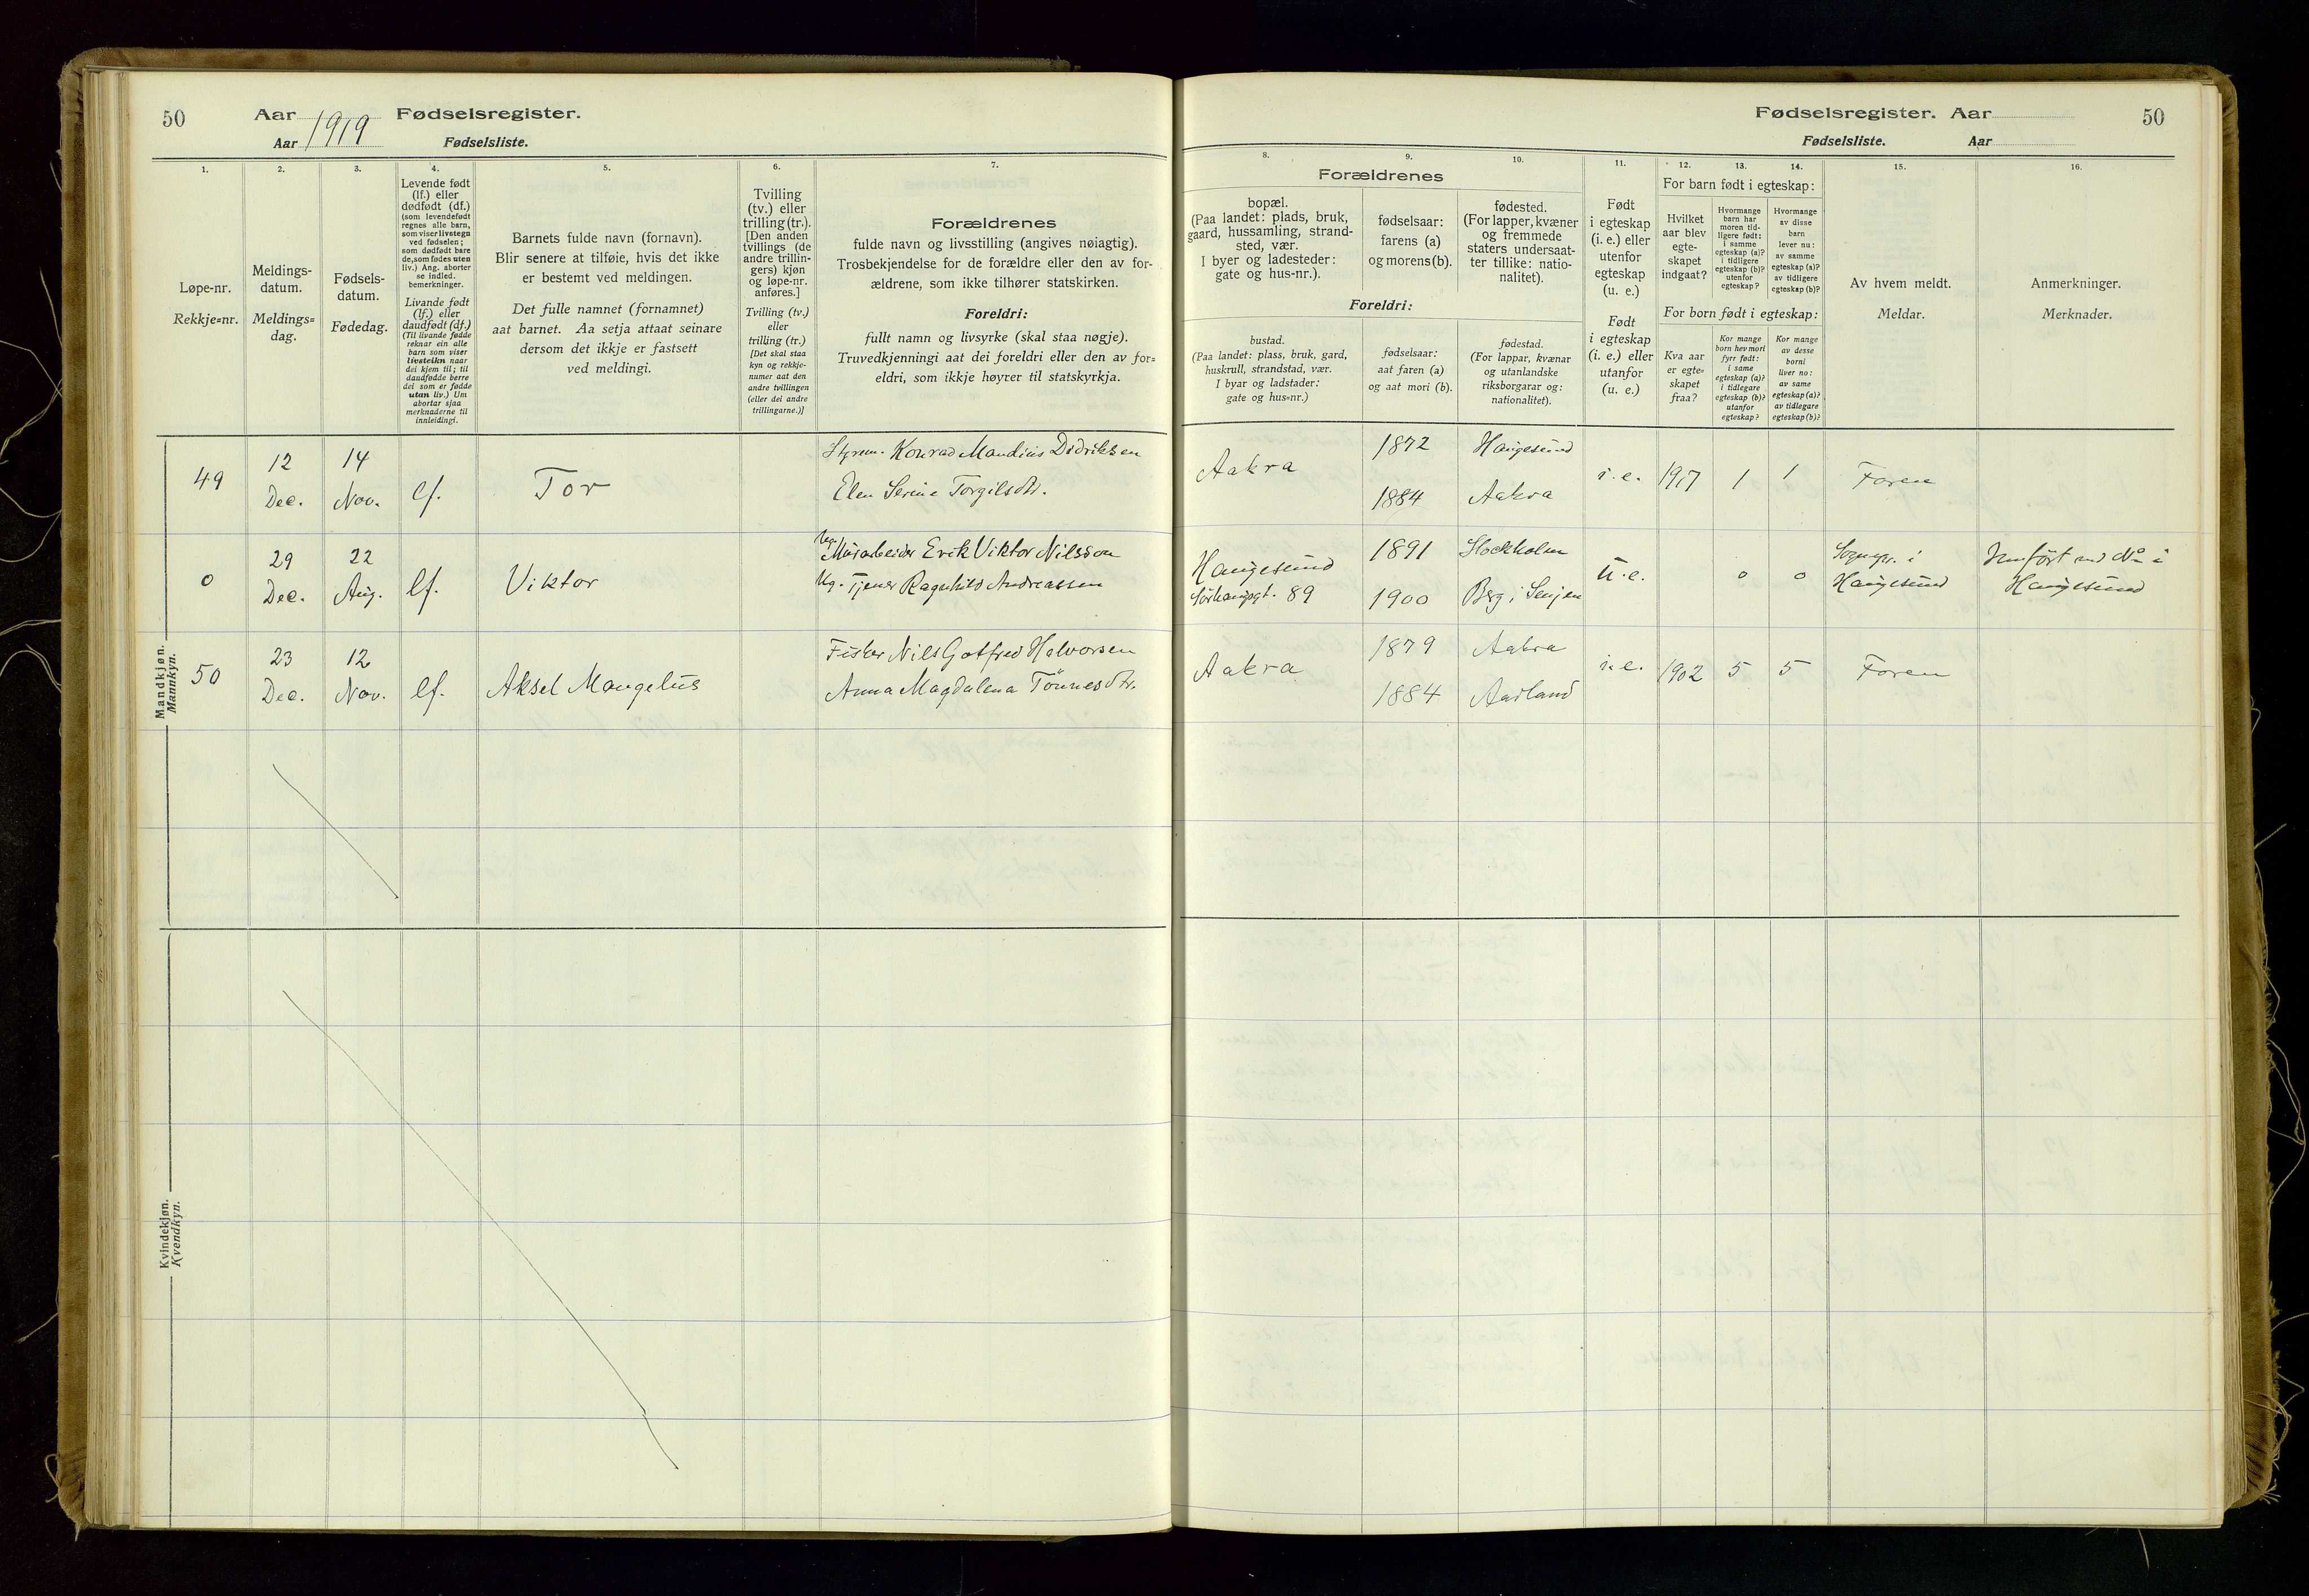 50 Aar 1919 Fødselsregister.
Aar Fødselsliste.
1. 2. 3. 4. 5. 6. 7.
Løpe-nr.
Rekkje=nr.
Meldings-
datum.
Meldings=
dag.
Fødsels-
datum.
Fødedag.
Levende født
(lf.) eller
dødfødt (df.)
(som levendefødt
regnes alle barn,
som viser livstegn
ved fødselen;
som dødfødt bare
de, som fødes uten
liv.) Ang. aborter
se indled.
bemerkninger.
Livande født
(lf.) eller
daudfødt (df.)
(Til livande fødde
reknar ein alle
barn som viser
livsteikn naar
dei kjem til; til
daudfødde berre
dei som er fødde
utan liv.) Um
abortar sjaa
merknaderne til
innleidingi.
Barnets fulde navn (fornavn).
Blir senere at tilføie, hvis det ikke
er bestemt ved meldingen.
Det fulle namnet (fornamnet)
aat barnet. Aa setja attaat seinare
dersom det ikkje er fastsett
ved meldingi.
Tvilling
(tv.) eller
trilling (tr.).
[Den anden
tvillings (de
andre trillin-
gers) kjøn
og løpe-nr.
anføres.]
Tvilling (tv.)
eller
trilling (tr.)
[Det skal staa
kyn og rekkje-
numer aat den
andre tvillingen
(eller dei andre
trillingarne.)]
Forældrenes
fulde navn og livsstilling (angives nøiagtig).
Trosbekjendelse for de forældre eller den av for-
ældrene, som ikke tilhører statskirken.
Foreldri:
fullt namn og livsyrke (skal staa nøgje).
Truvedkjenningi aat dei foreldri eller den av for=
eldri, som ikkje høyrer til statskyrkja.
Mandkjøn.
Mannkyn.
49 12 Dec. 14 Nov. lf. Tor
Styrm. Konrad Mandius Didriksen
Elen Serine Torgilsdtr.
0 29 Dec. 22 Aug. lf. Viktor
Ug. Murarbeider Erik Viktor Nilsson
Ug. Tjener Ragnhild Andreassen
50 23 Dec. 12 Nov. lf. Aksel Mangelus
Fisker Nils Gotfred Halvorsen
Anna Magdalena Tönnesdtr.
Kvindekjøn.
Kvendkyn.
Fødselsregister. Aar 50
Fødselsliste. Aar
8. 9. 10. 11. 12. 13. 14. 15. 16.
Forældrenes
bopæl.
(Paa landet: plads, bruk,
gaard, hussamling, strand-
sted, vær.
I byer og ladesteder:
gate og hus-nr.).
fødselsaar:
farens (a)
og morens (b).
fødested.
(For lapper, kvæner
og fremmede
staters undersaat-
ter tillike: natio-
nalitet).
Foreldri:
bustad.
(Paa landet: plass, bruk, gard,
huskrull, strandstad, vær.
I byar og ladstader:
gate og hus=nr.)
fødselsaar:
aat faren (a)
og aat mori (b).
fødestad.
(For lappar, kvænar
og utanlandske
riksborgarar og:
nationalitet).
Født
i egteskap
(i. e.) eller
utenfor
egteskap
(u. e.)
Født
i egteskap
(i. e.) eller
utanfor
(u. e.)
For barn født i egteskap:
Hvilket
aar blev
egte-
skapet
indgaat?
Hvormange
barn har
moren tid-
ligere født:
i samme
egteskap (a)?
i tidligere
egteskap (b)?
utenfor
egteskap?
Hvormange
av disse
barn
lever nu:
av samme
egteskap (a)?
av tidligere
egteskap (b)?
For born født i egteskap:
Kva aar
er egte=
skapet
fraa?
Kor mange
born hev mori
fyrr født:
i same
egteskap (a)?
i tidlegare
egteskap (b)?
utanfor
egteskap?
Kor mange
av desse
borni
liver no:
av same
egteskap (a)?
av tidlegare
egteskap (b)?
Av hvem meldt.
Meldar.
Anmerkninger.
Merknader.
Aakra 1872 Haugesund
1884 Aakra
i. e. 1917 1 1 Faren
Haugesund 1891 Stockholm
Sörhauggt. 89 1900 Berg i Senjen
u. e. 0 0 Sognepr. i Haugesund
Jemfört med No i Haugesund
Aakra 1879 Aakra
1884 Aadland
i. e. 1902 5 5 Faren